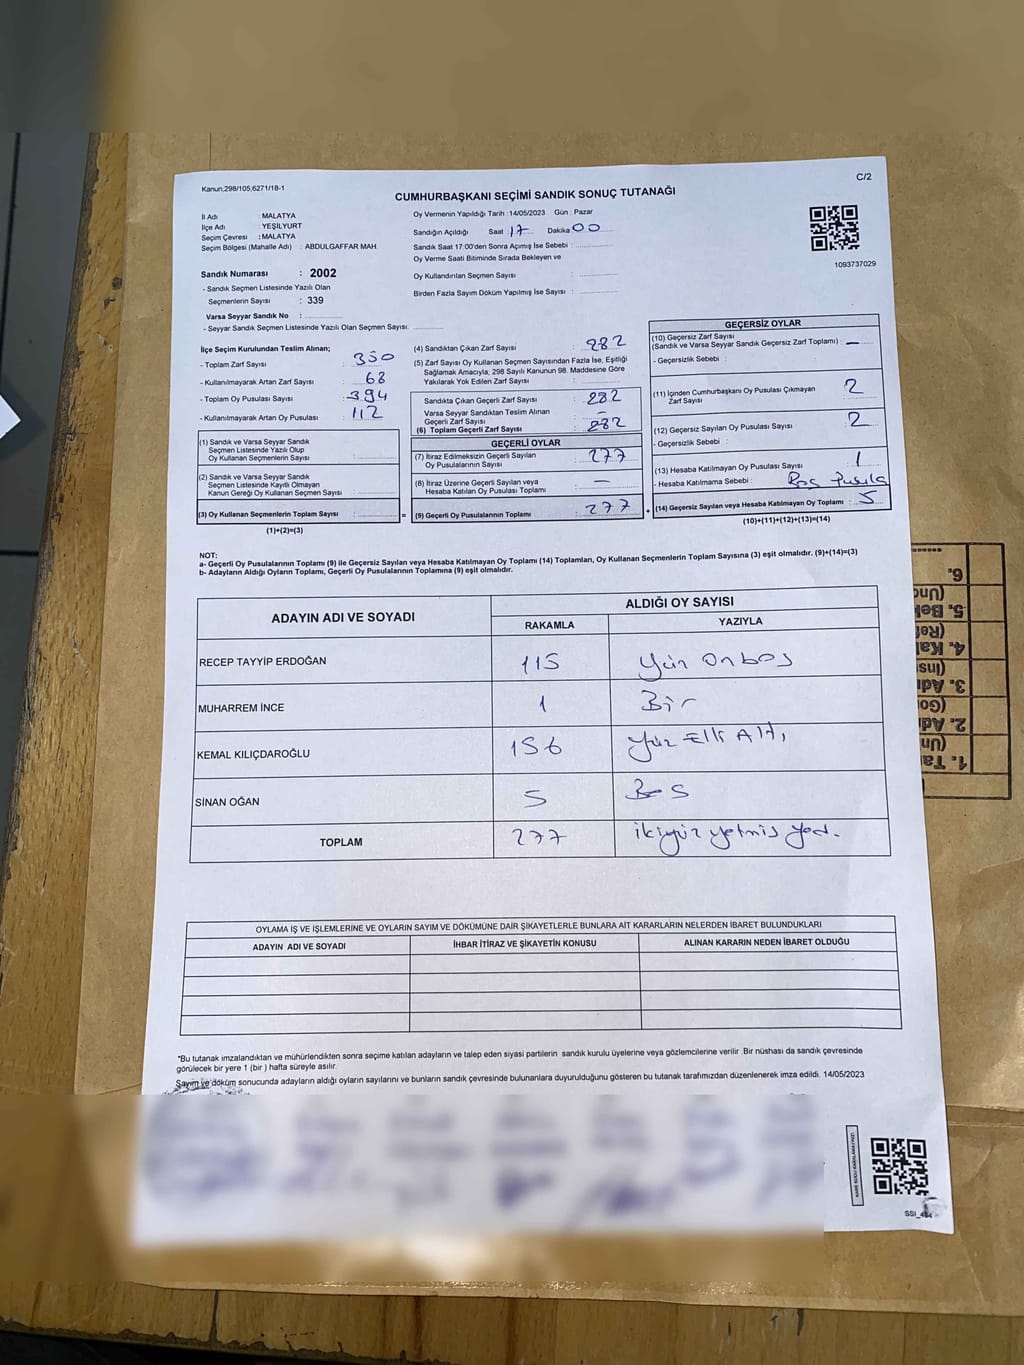 Kanun;298/105;6271/18-1
C/2
CUMHURBAŞKANI SEÇİMİ SANDIK SONUÇ TUTANAĞI
İl Adı : MALATYA
İlçe Adı : YEŞİLYURT
Seçim Çevresi : MALATYA
Seçim Bölgesi (Mahalle Adı) : ABDULGAFFAR MAH.
Sandık Numarası : 2002
- Sandık Seçmen Listesinde Yazılı Olan
Seçmenlerin Sayısı : 339
Varsa Seyyar Sandık No :
- Seyyar Sandık Seçmen Listesinde Yazılı Olan Seçmen Sayısı:
Oy Vermenin Yapıldığı Tarih :14/05/2023 Gün : Pazar
Sandığın Açıldığı Saat : 17 Dakika 00
Sandık Saat 17:00'den Sonra Açımış İse Sebebi :
Oy Verme Saati Bitiminde Sırada Bekleyen ve
Oy Kullandırılan Seçmen Sayısı :
Birden Fazla Sayım Döküm Yapılmış İse Sayısı :
1093737029
İlçe Seçim Kurulundan Teslim Alınan;
- Toplam Zarf Sayısı : 350
- Kullanılmayarak Artan Zarf Sayısı : 68
- Toplam Oy Pusulası Sayısı : 394
- Kullanılmayarak Artan Oy Pusulası : 112
(1) Sandık ve Varsa Seyyar Sandık
Seçmen Listesinde Yazılı Olup
Oy Kullanan Seçmenlerin Sayısı :
(2) Sandık ve Varsa Seyyar Sandık
Seçmen Listesinde Kayıtlı Olmayan
Kanun Gereği Oy Kullanan Seçmen Sayısı :
(3) Oy Kullanan Seçmenlerin Toplam Sayısı : =
(1)+(2)=(3)
(4) Sandıktan Çıkan Zarf Sayısı : 282
(5) Zarf Sayısı Oy Kullanan Seçmen Sayısından Fazla İse, Eşitliği
Sağlamak Amacıyla; 298 Sayılı Kanunun 98. Maddesine Göre
Yakılarak Yok Edilen Zarf Sayısı :
Sandıkta Çıkan Geçerli Zarf Sayısı : 282
Varsa Seyyar Sandıktan Teslim Alınan
Geçerli Zarf Sayısı : —
(6) Toplam Geçerli Zarf Sayısı : 282
GEÇERLİ OYLAR
(7) İtiraz Edilmeksizin Geçerli Sayılan
Oy Pusulalarının Sayısı : 277
(8) İtiraz Üzerine Geçerli Sayılan veya
Hesaba Katılan Oy Pusulası Toplamı : —
(9) Geçerli Oy Pusulalarının Toplamı : 277 +
GEÇERSİZ OYLAR
(10) Geçersiz Zarf Sayısı
(Sandık ve Varsa Seyyar Sandık Geçersiz Zarf Toplamı) : —
- Geçersizlik Sebebi :
(11) İçinden Cumhurbaşkanı Oy Pusulası Çıkmayan
Zarf Sayısı : 2
(12) Geçersiz Sayılan Oy Pusulası Sayısı : 2
- Geçersizlik Sebebi :
(13) Hesaba Katılmayan Oy Pusulası Sayısı : 1
- Hesaba Katılmama Sebebi : Boş Pusula
(14) Geçersiz Sayılan veya Hesaba Katılmayan Oy Toplamı : 5
(10)+(11)+(12)+(13)=(14)
NOT:
a- Geçerli Oy Pusulalarının Toplamı (9) ile Geçersiz Sayılan veya Hesaba Katılmayan Oy Toplamı (14) Toplamları, Oy Kullanan Seçmenlerin Toplam Sayısına (3) eşit olmalıdır. (9)+(14)=(3)
b- Adayların Aldığı Oyların Toplamı, Geçerli Oy Pusulalarının Toplamına (9) eşit olmalıdır.
ADAYIN ADI VE SOYADI
ALDIĞI OY SAYISI
RAKAMLA YAZIYLA
RECEP TAYYİP ERDOĞAN 115 Yüz Onbeş
MUHARREM İNCE 1 Bir
KEMAL KILIÇDAROĞLU 156 Yüz Elli Altı
SİNAN OĞAN 5 Beş
TOPLAM 277 ikiyüz yetmiş yedi.
OYLAMA İŞ VE İŞLEMLERİNE VE OYLARIN SAYIM VE DÖKÜMÜNE DAİR ŞİKAYETLERLE BUNLARA AİT KARARLARIN NELERDEN İBARET BULUNDUKLARI
ADAYIN ADI VE SOYADI İHBAR İTİRAZ VE ŞİKAYETİN KONUSU ALINAN KARARIN NEDEN İBARET OLDUĞU
*Bu tutanak imzalandıktan ve mühürlendikten sonra seçime katılan adayların ve talep eden siyasi partilerin sandık kurulu üyelerine veya gözlemcilerine verilir .Bir nüshası da sandık çevresinde
görülecek bir yere 1 (bir ) hafta süreyle asılır.
Sayım ve döküm sonucunda adayların aldığı oyların sayılarını ve bunların sandık çevresinde bulunanlara duyurulduğunu gösteren bu tutanak tarafımızdan düzenlenerek imza edildi. 14/05/2023
6.
5.
4.
3.
2.
1.